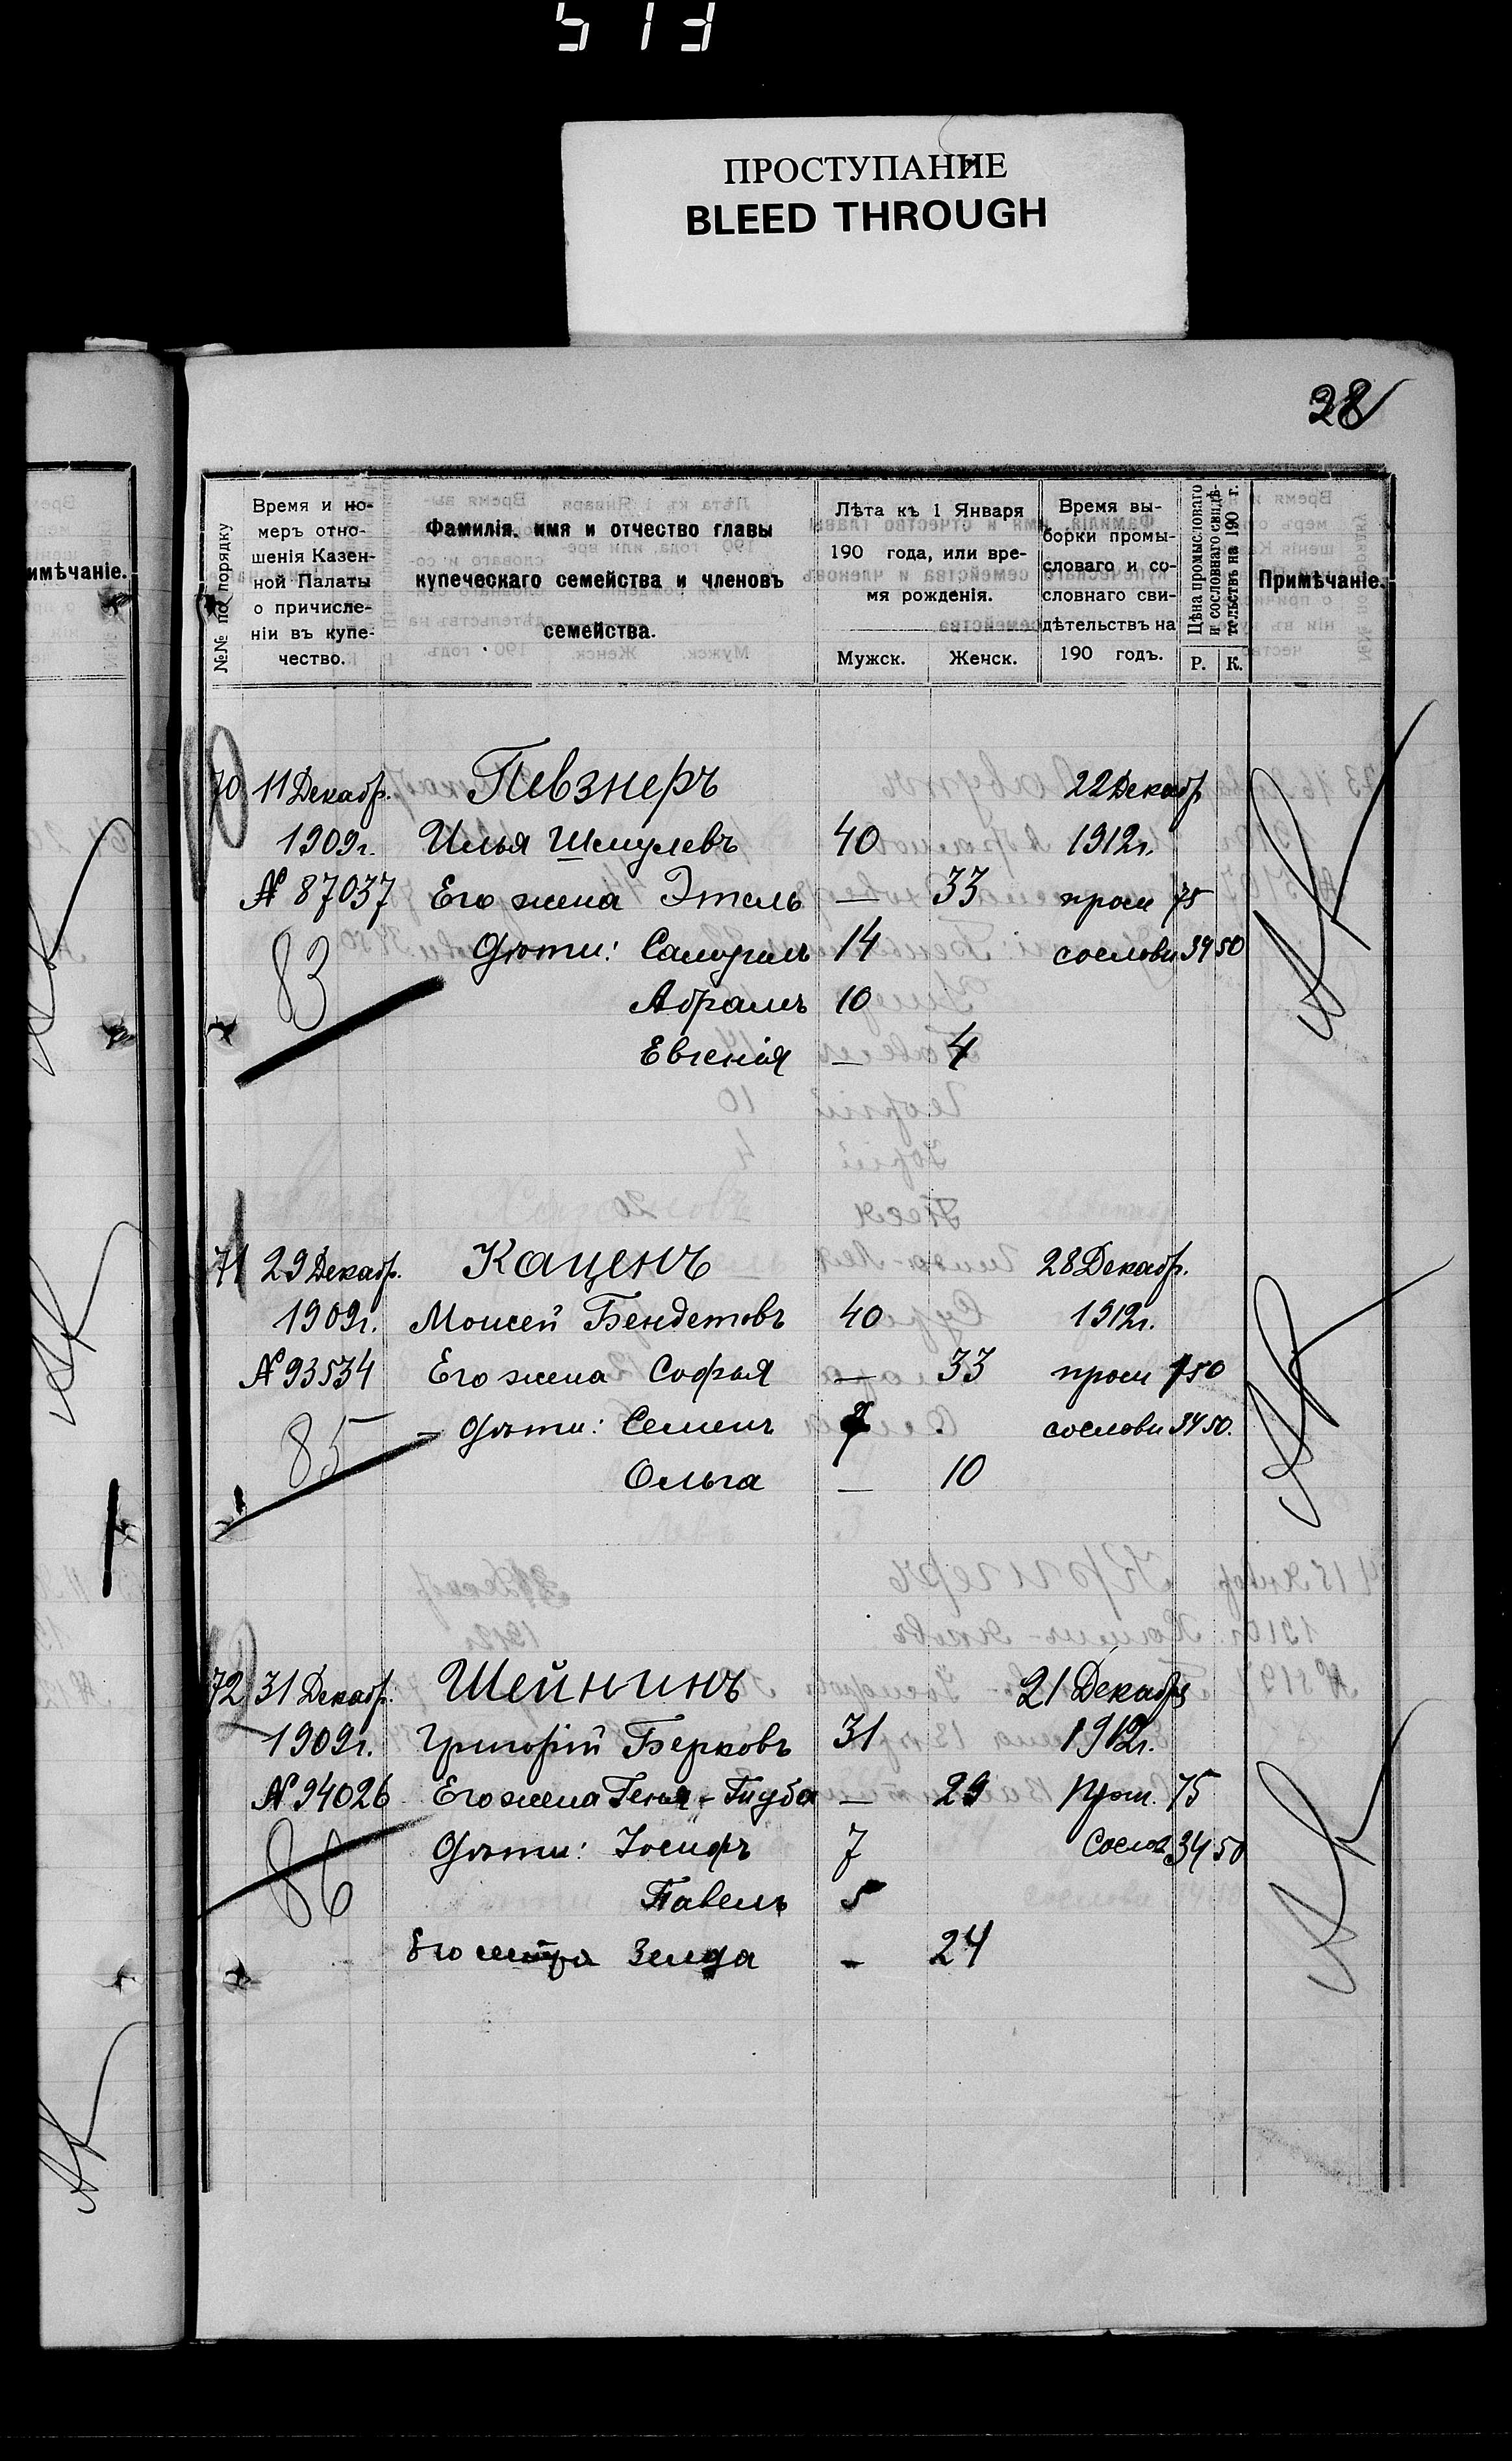 513
ПРОСТУПАНИЕ
BLEED THROUGH
28
имѣчаніе.
№№ по порядку
Время и но-
меръ отно-
шенія Казен-
ной Палаты
о причисле-
ніи въ купе-
чество.
Фамилія, имя и отчество главы
купеческаго семейства и членовъ
семейства.
Лѣта къ 1 Января
190 года, или вре-
мя рожденія.
Мужск. Женск.
Время вы-
борки промы-
словаго и со-
словнаго сви-
дѣтельствъ на
190 годъ.
Цѣна промысловаго
и сословнаго свидѣ-
тельствъ на 190 г.
Р. К.
Примѣчаніе.
70 11 Декабр. Певзнеръ 22 Декабр
1909г. Илья Шмулевъ 40 1912г.
№ 87037 Его жена Этель — 33 пром 75
83 Дѣти: Самуилъ 14 сословн 34 50
Абрамъ 10
Евгенія — 4
71 29 Декабр. Каценъ 28 Декабр.
1909г. Моисей Бендетовъ 40 1912г.
№ 93534 Его жена Софья — 33 пром 150
85 Дѣти: Семенъ сословн 34 50.
Ольга — 10
72 31 Декабр. Шейнинъ 21 Декабря
1909г. Григорій Берковъ 31 1912г.
№ 94026 Его жена Геня-Гнуба — 29 Пром. 75
86 Дѣти: Іосифъ 7 Сослов 34 50
Павелъ 5
Его сестра Зелда - 24